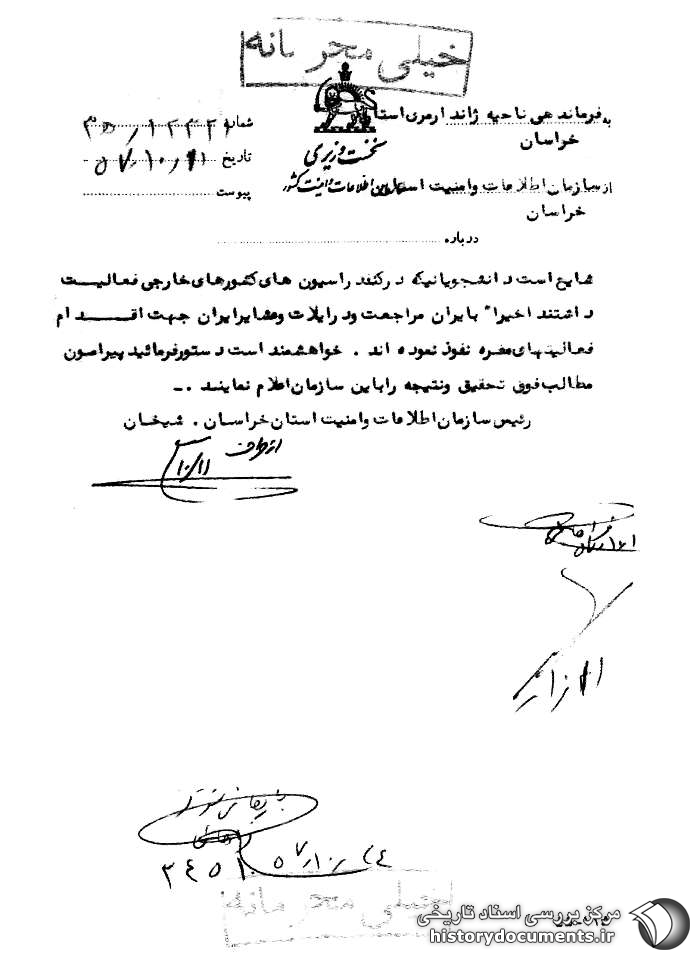 خیلی محرمانه
به فرماندهی ناحیه ژاندارمری استان
خراسان
نخست وزیری
سازمان اطلاعات و امنیت کشور
شماره
تاریخ ۵۷/۱۰/۱۱
پیوست
از سازمان اطلاعات وامنیت استان
خراسان
درباره
شایع است دانشجویانیکه در کنفدراسیون های کشورهای خارجی فعالیت
داشتند اخیراً بایران مراجعت ودر ایلات وعشایر ایران جهت اقدام
فعالیتهای مضره نفوذ نموده اند . خواهشمند است دستور فرمائید پیرامون
مطالب فوق تحقیق ونتیجه را باین سازمان اعلام نمایند .ـ
رئیس سازمان اطلاعات وامنیت استان خراسان . شیخان
از طرف
۵۷/۱۰/۲۴
۳۴۵۱
خیلی محرمانه
مرکز بررسی اسناد تاریخی
historydocuments.ir